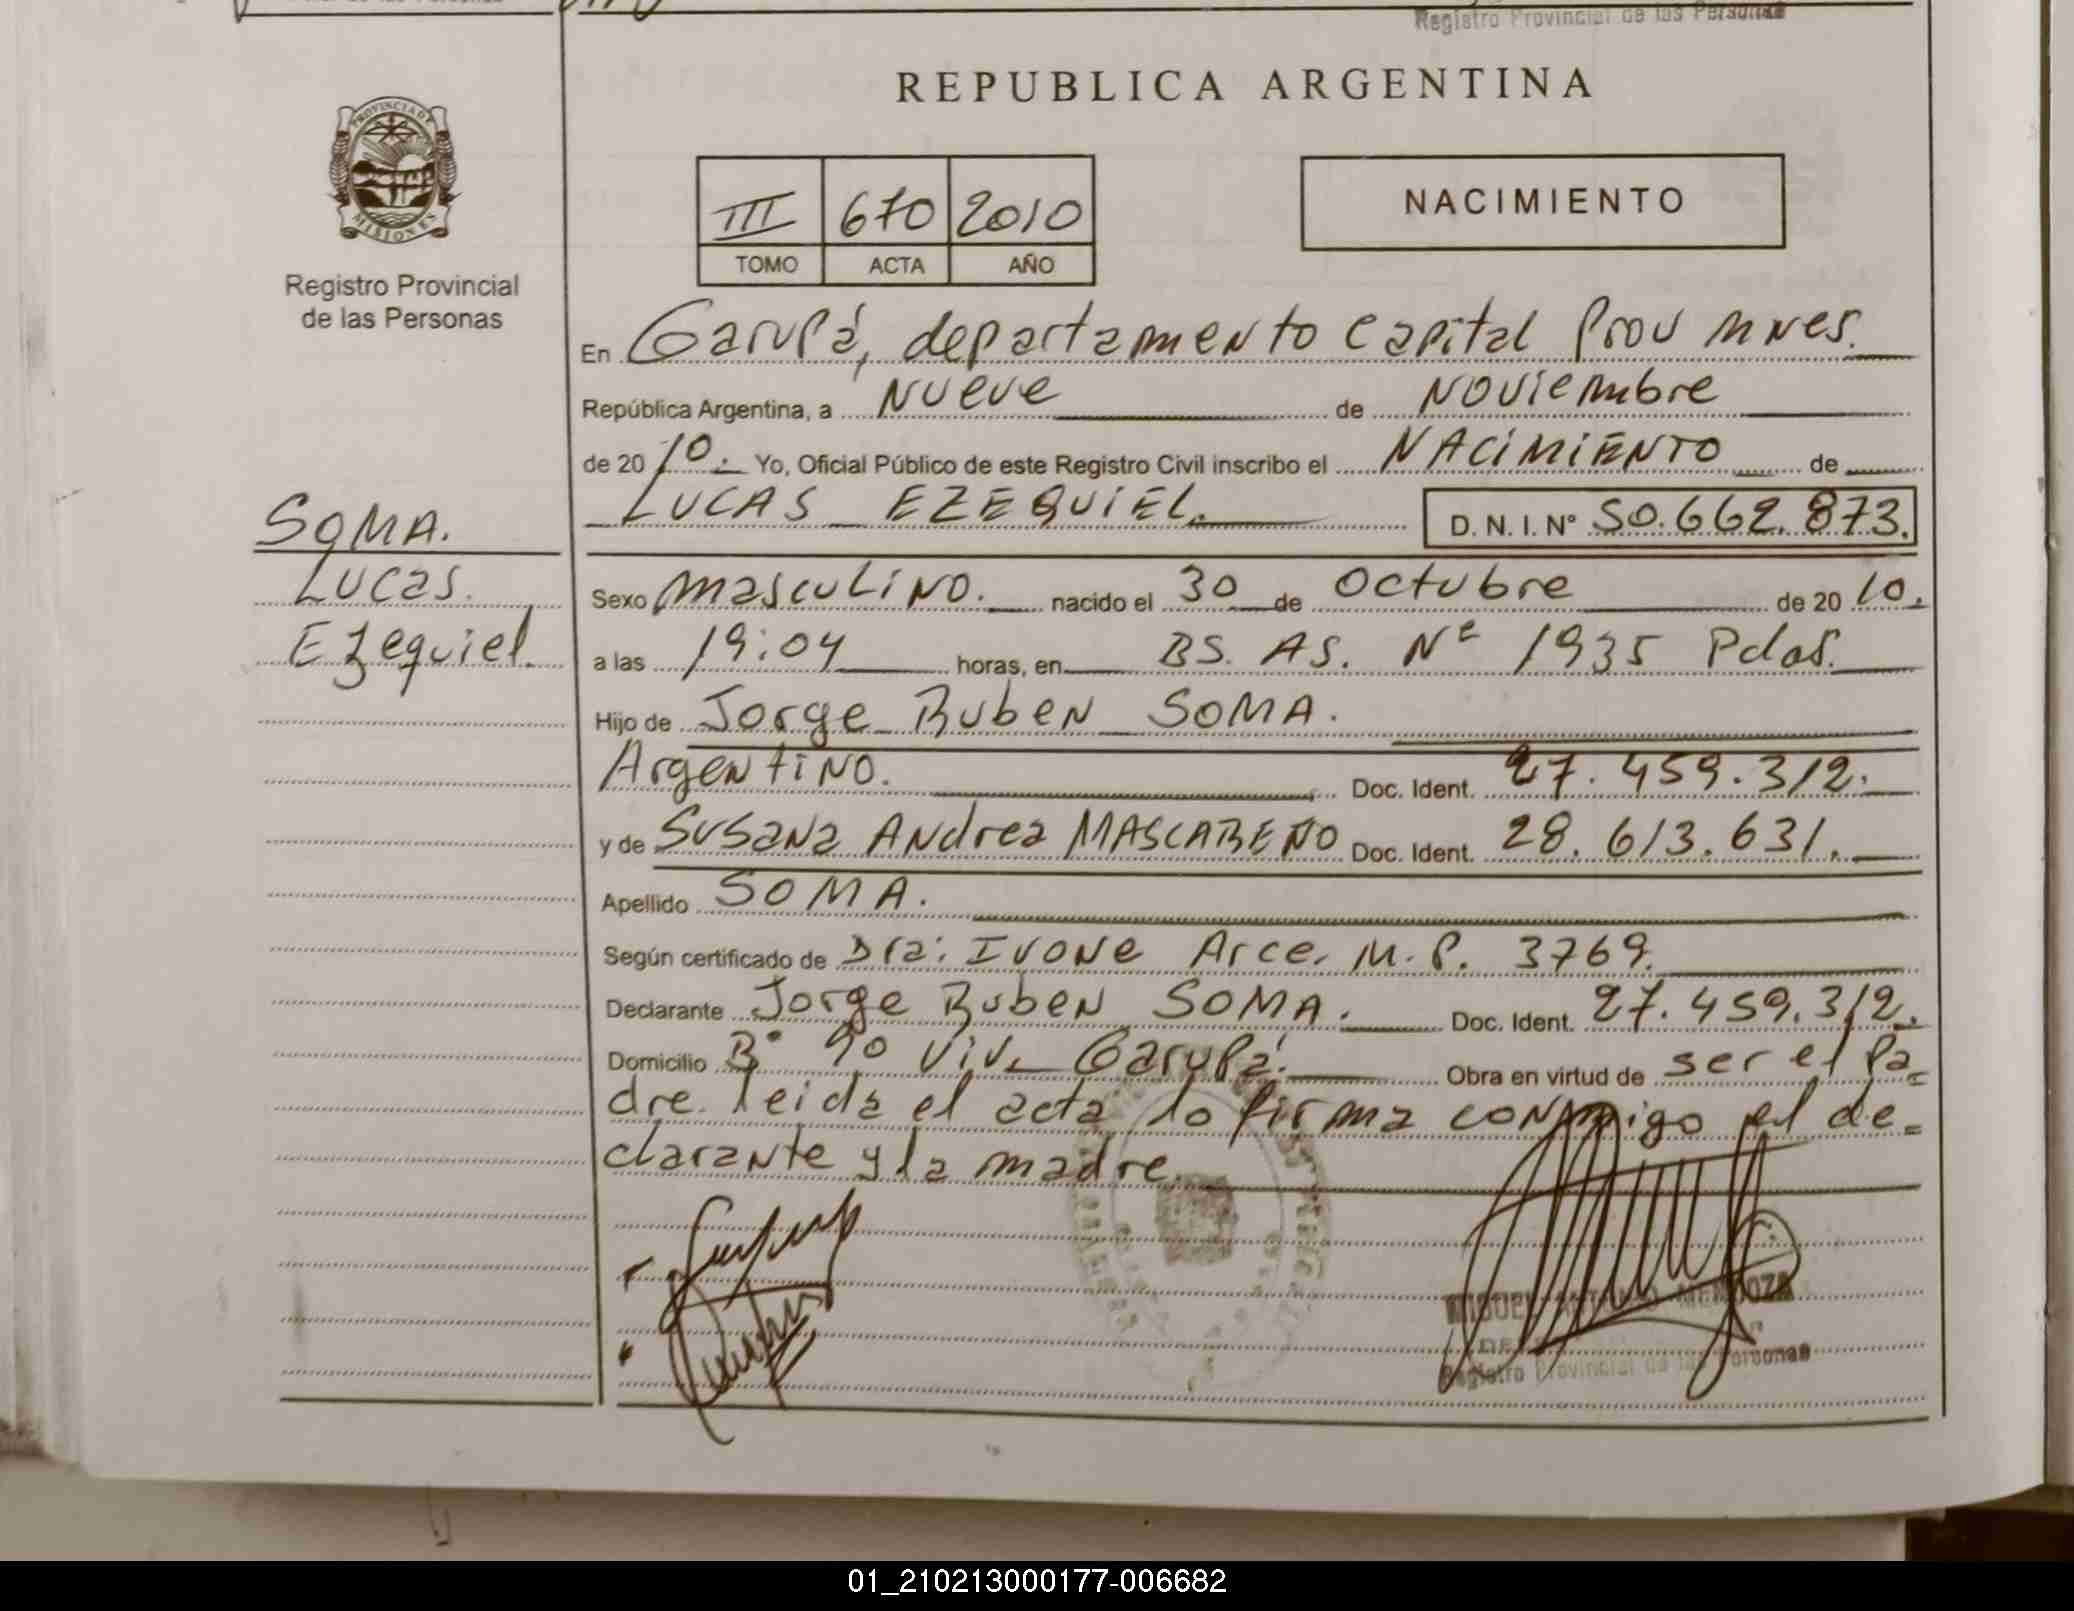 Registro Provincial de las Personas
REPUBLICA ARGENTINA
PROVINCIA DE
MISIONES
Registro Provincial
de las Personas
III 670 2010
TOMO ACTA AÑO
NACIMIENTO
En Garupá, departamento Capital Prov Mnes.
República Argentina, a Nueve de Noviembre
de 20 10. Yo, Oficial Público de este Registro Civil inscribo el NACIMIENTO de
LUCAS EZEQUIEL. D. N. I. N° 50.662.873.
SOMA.
Lucas.
Ezequiel.
Sexo masculino. nacido el 30 de Octubre de 20 10.
a las 19:04 horas, en BS. AS. Nº 1935 Pdas.
Hijo de Jorge Ruben SOMA.
Argentino. Doc. Ident. 27.459.312.
y de Susana Andrea MASCAREÑO Doc. Ident. 28.613.631.
Apellido SOMA.
Según certificado de Dra: Ivone Arce. M.P. 3769.
Declarante Jorge Ruben SOMA. Doc. Ident. 27.459.312.
Domicilio B° 90 Viv. Garupá. Obra en virtud de ser el Pa=
dre. leida el acta lo firma conmigo el de=
clarante y la madre.
MIGUEL ANTONIO MENDOZA
Registro Provincial de las Personas
01_210213000177-006682